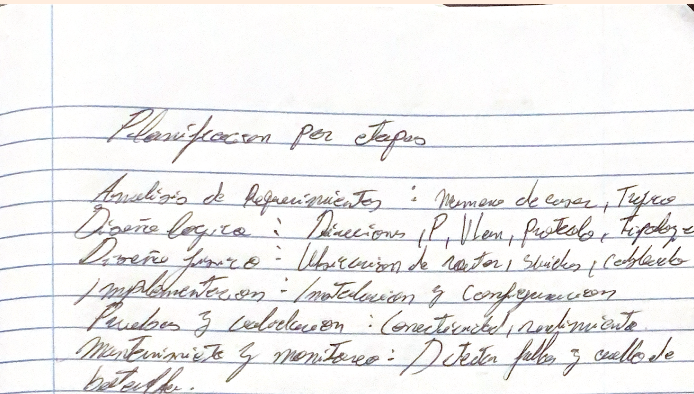 Planificacion por etapas
Analisis de Requerimientos : numero de , Trafico
Diseño logico : Direcciones , P, Vlan, protocolo, Topologi
Diseño fisico : Ubicacion de router, swiches, cableado
Implementacion : Instalacion y Configuracion
Pruebas y validacion : Conectividad, rendimiento
Mantenimiento y monitoreo : Detectar fallas y cuello de
botella.